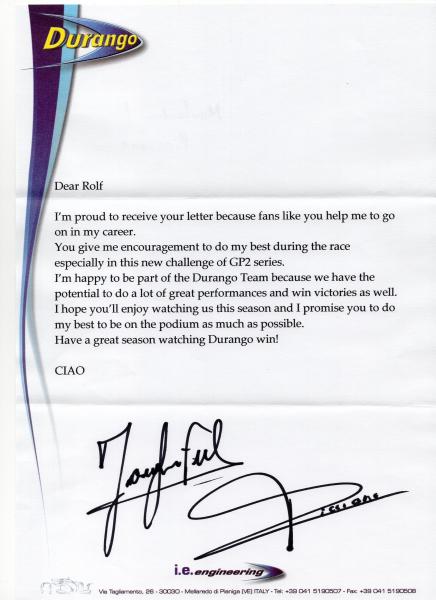 Durango
Dear Rolf
I'm proud to receive your letter because fans like you help me to go
on in my career.
You give me encouragement to do my best during the race
especially in this new challenge of GP2 series.
I'm happy to be part of the Durango Team because we have the
potential to do a lot of great performances and win victories as well.
I hope you'll enjoy watching us this season and I promise you to do
my best to be on the podium as much as possible.
Have a great season watching Durango win!
CIAO
i.e.engineering
Via Tagliamento, 26 - 30030 - Mellaredo di Pianiga (VE) ITALY - Tel. +39 041 5190507 - Fax +39 041 5190508